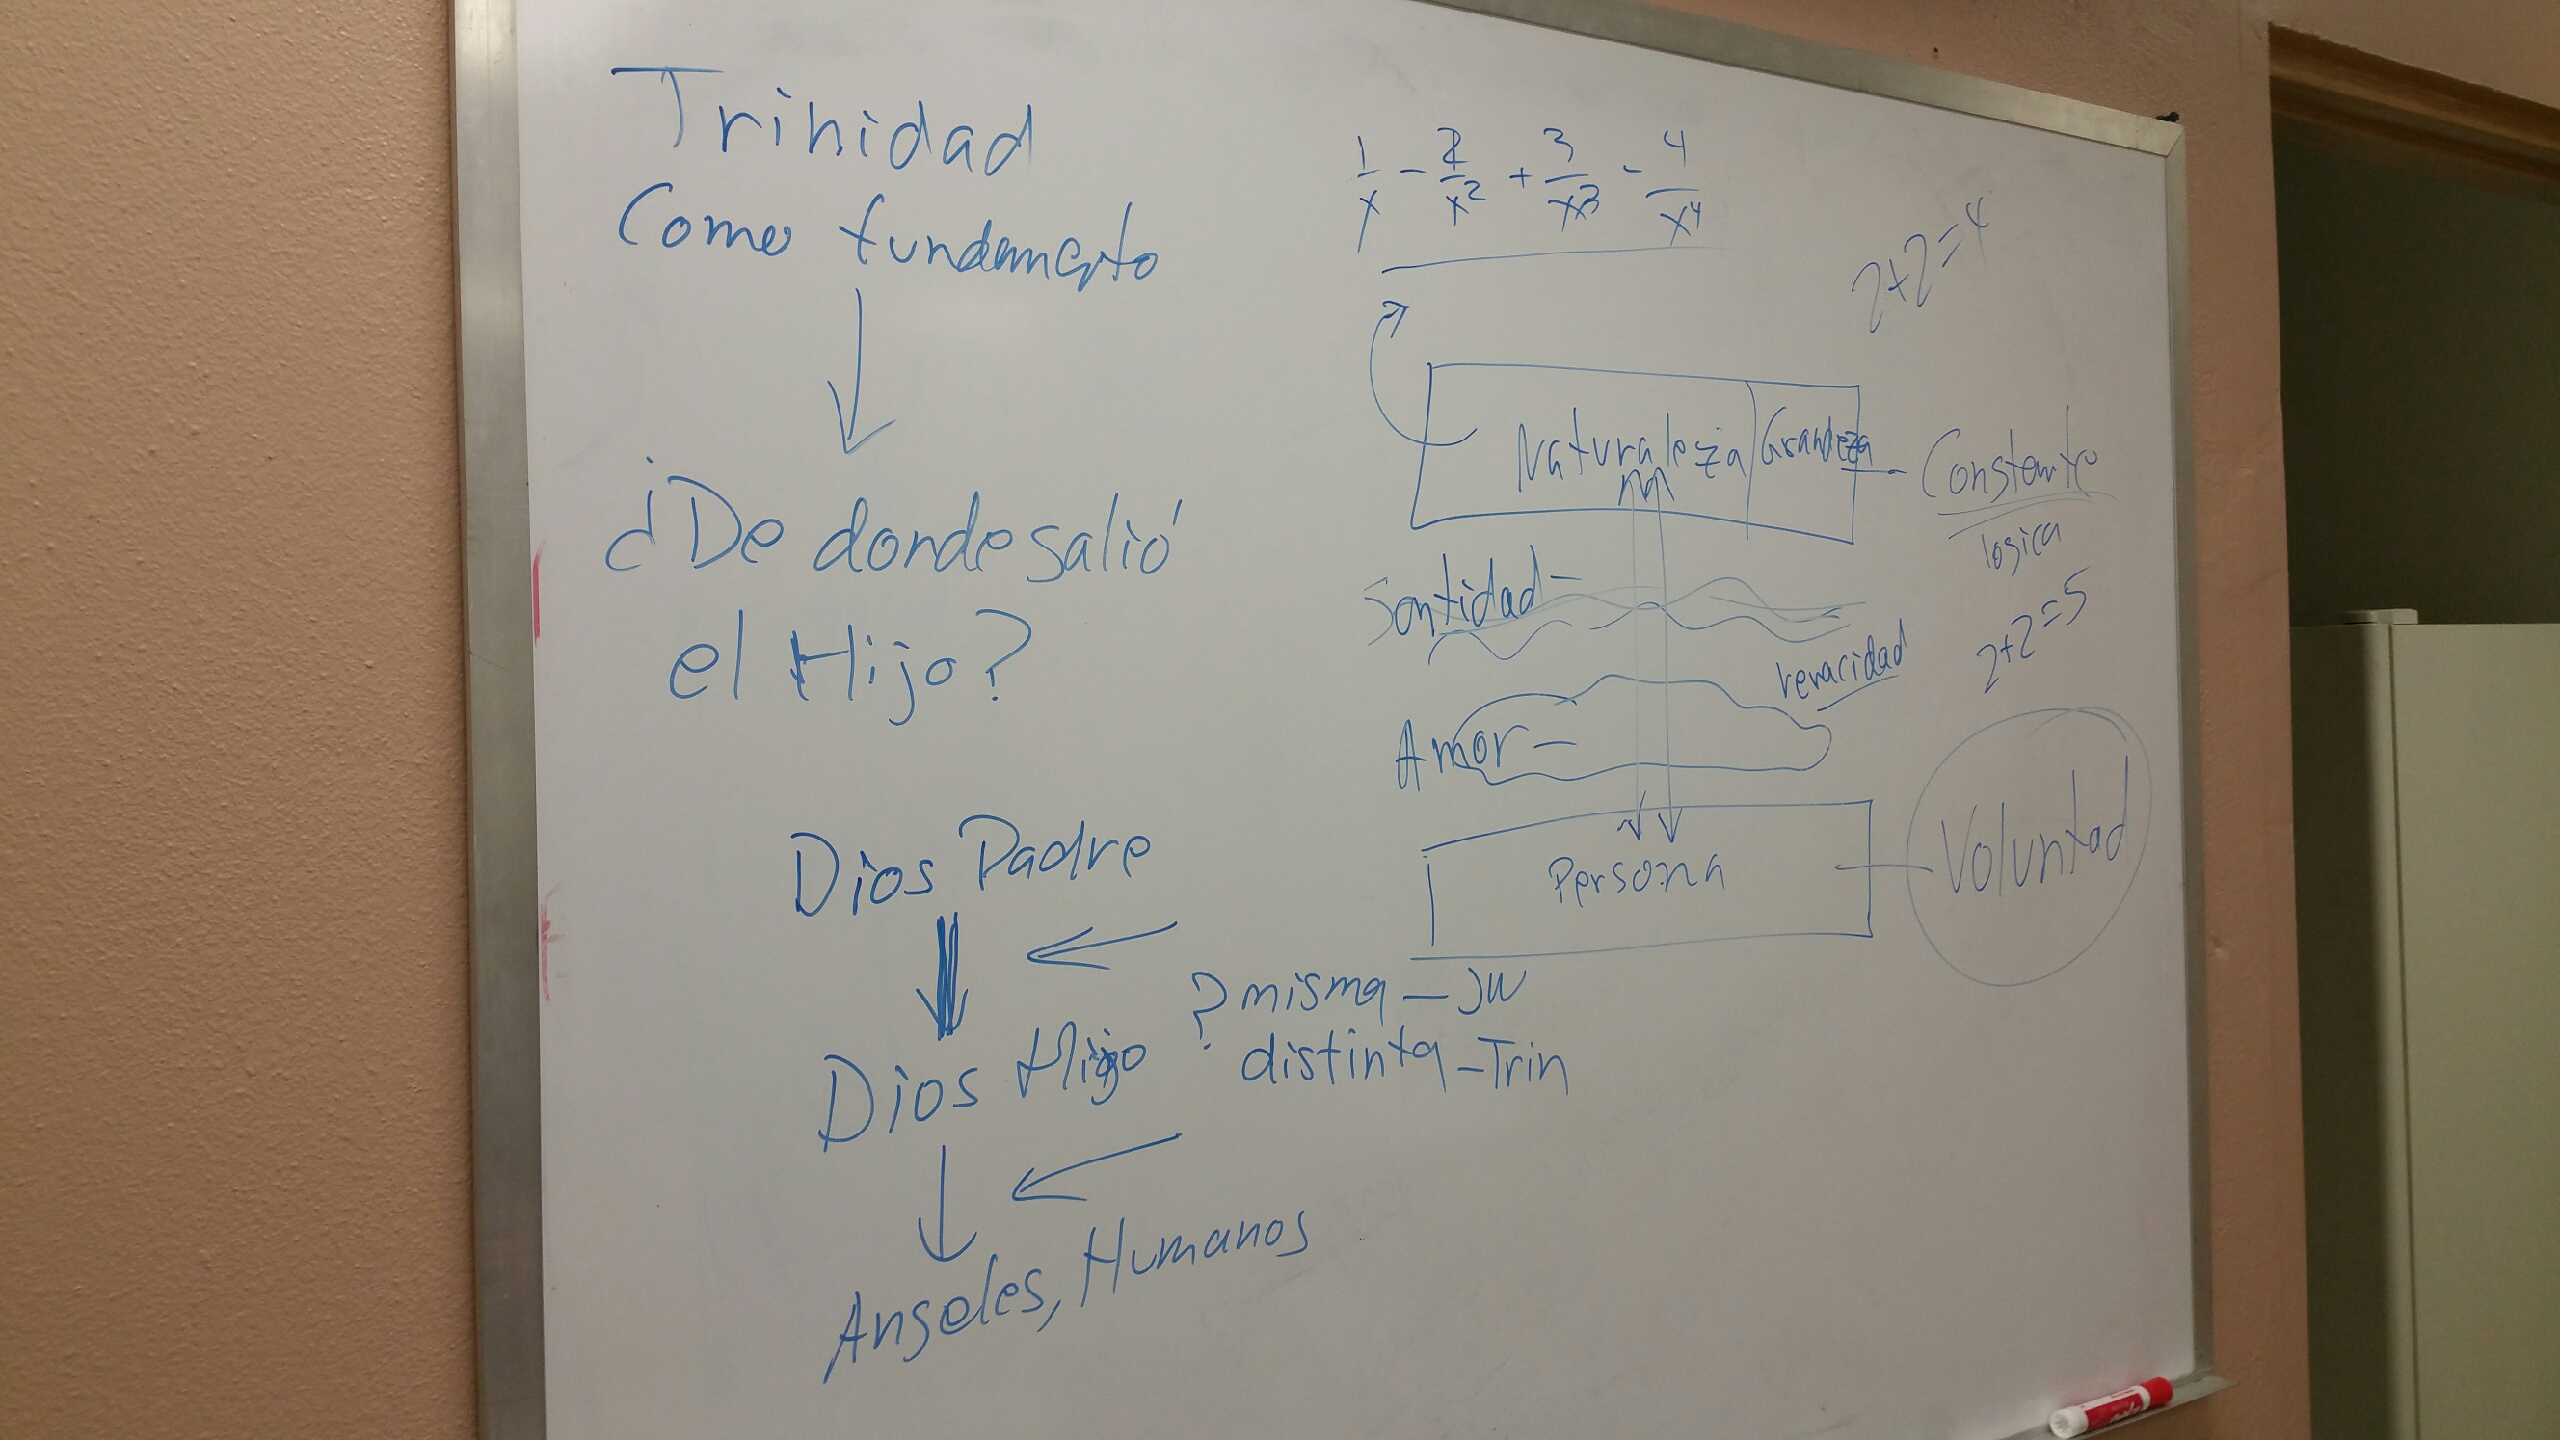 Trinidad
Como fundamento
¿De donde salió
el Hijo?
Dios Padre
Dios Hijo
? misma - JW
distinta - Trin
Angeles, Humanos
1/x - 2/x² + 3/x³ - 4/x⁴
2+2=4
Naturaleza Grandeza - Constante
logica
Santidad -
2+2=5
veracidad
Amor -
Persona
Voluntad